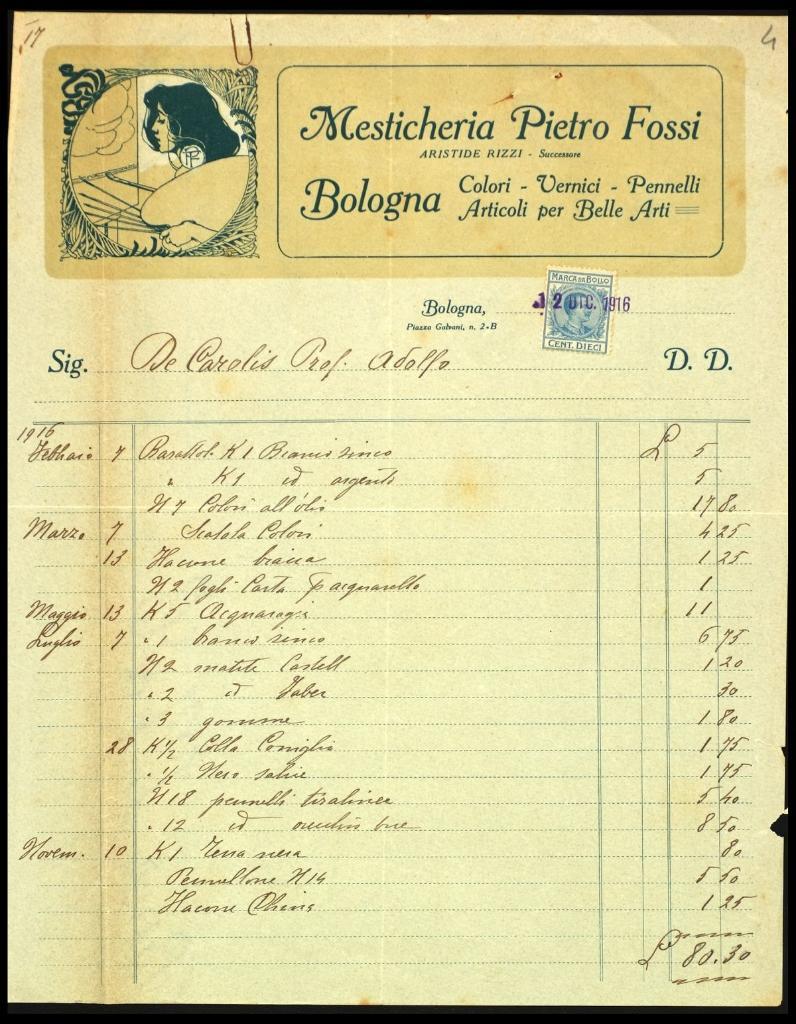 17
4
Mesticheria Pietro Fossi
ARISTIDE RIZZI - Successore
Bologna
Colori - Vernici - Pennelli
Articoli per Belle Arti
Bologna,
Piazza Galvani, n. 2-B
MARCA DA BOLLO
12 DIC. 1916
CENT. DIECI
Sig. De Carolis Prof. Adolfo D. D.
1916
Febbraio 7 Barattol. K 1 Bianco zinco £ 5
" K 1 id argento 5
N 7 Colori all'olio 17 80
Marzo 7 Scatola Colori 4 25
13 Flacone biacca 1 25
N 2 fogli Carta p acquarello 1
Maggio 13 K 5 Acquaragia 11
Luglio 7 " 1 bianco zinco 6 75
N 2 matite Castell 1 20
" 2 id Faber 30
" 3 gomme 1 80
28 K ½ Colla Coniglio 1 75
" ½ Nero 1 75
N 18 pennelli tiralinee 5 40
" 12 id orecchio bue 8 50
Novem. 10 K 1 Terra nera 80
Pennellone N 14 5 50
Flacone China 1 25
£ 80.30